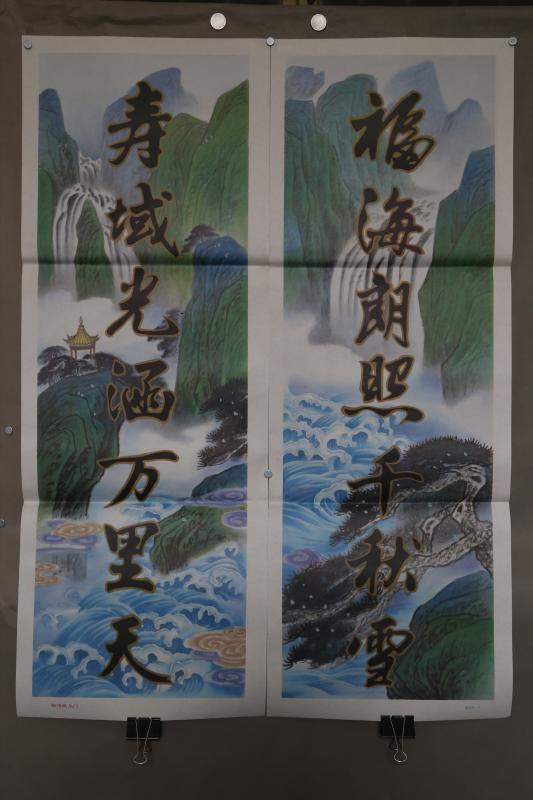 福海朗照千秋雪
寿域光涵万里天